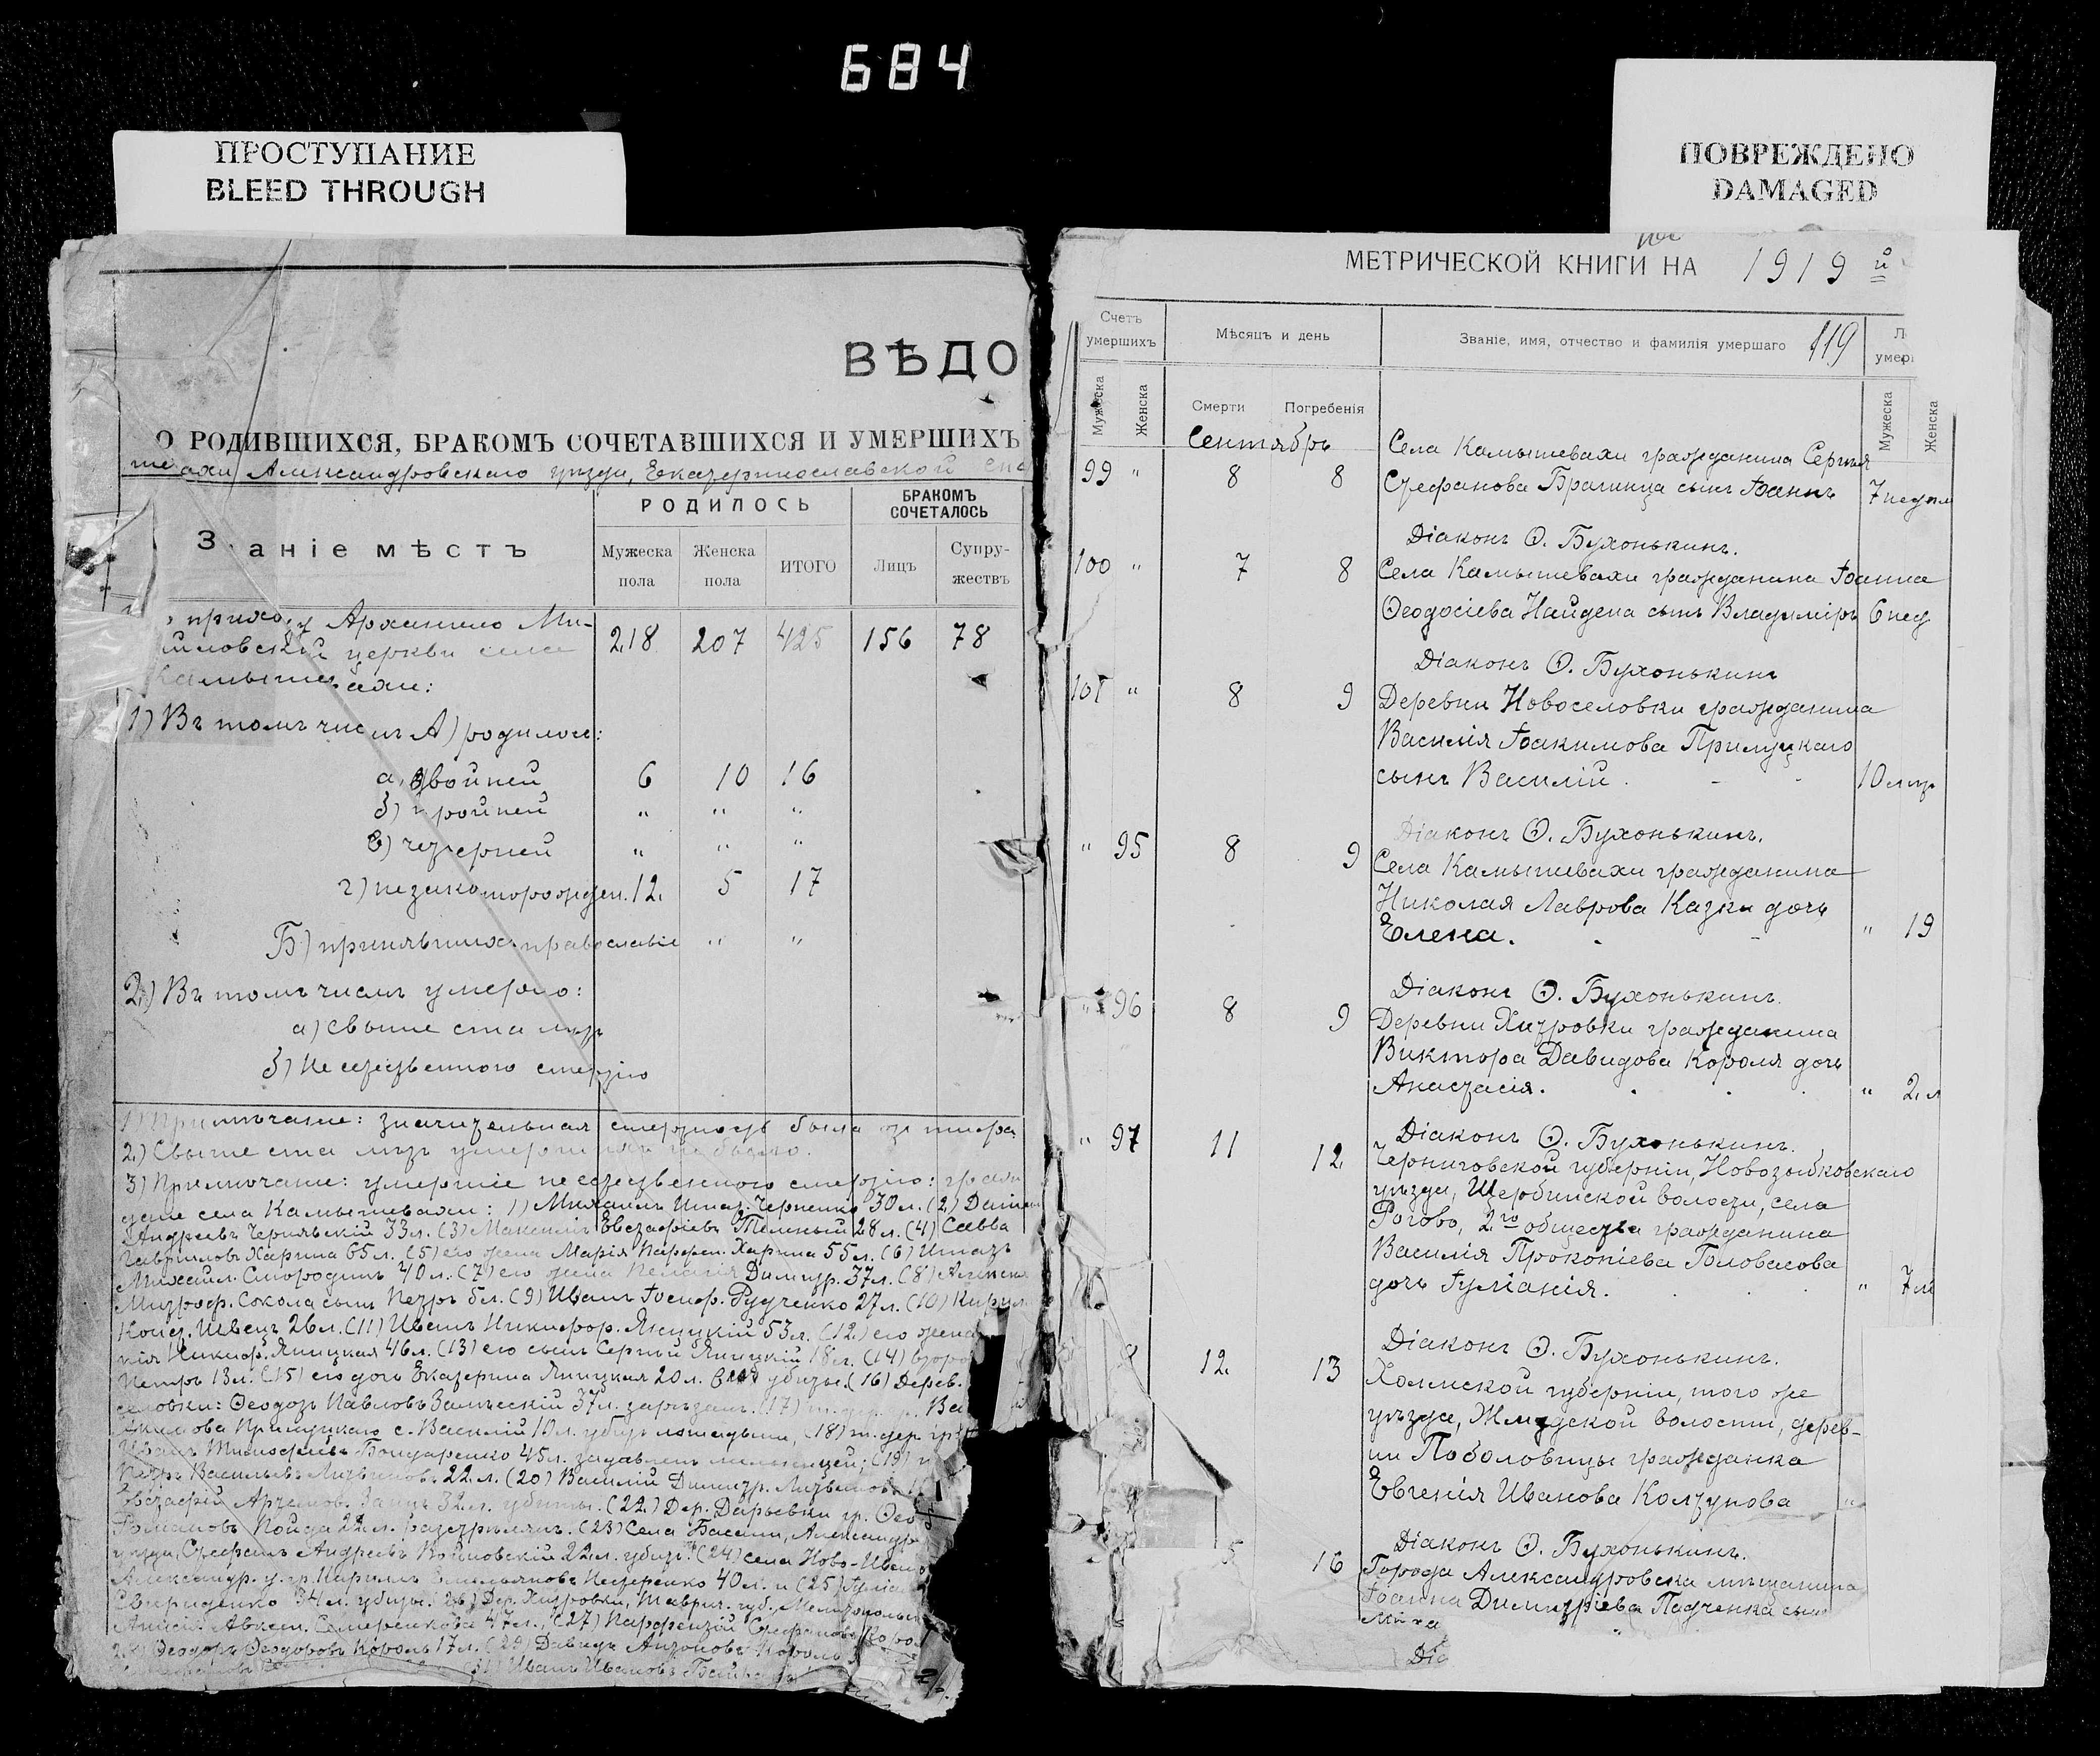 684
ПРОСТУПАНИЕ
BLEED THROUGH
ПОВРЕЖДЕНО
DAMAGED
ВѢДО
О РОДИВШИХСЯ, БРАКОМЪ СОЧЕТАВШИХСЯ И УМЕРШИХЪ
Александровскаго уѣзда, Екатеринославской
Званіе мѣстъ
РОДИЛОСЬ
БРАКОМЪ СОЧЕТАЛОСЬ
Мужеска пола
Женска пола
ИТОГО
Лицъ
Супружествъ
приходу Архангело Ми-
церкви села 218 207 425 156 78
1) Въ томъ числѣ А) родилось:
а) двойней 6 10 16
б) тройней " " "
в) четверней " " "
г) незаконорожден. 12. 5 17
Б) принявшихъ православіе " "
2) Въ томъ числѣ умерло:
а) свыше ста лѣтъ
б) Неестественною смертію
1) Примѣчаніе: значительная смертность была отъ тифа
2) Свыше ста лѣтъ умершихъ не было.
3) Примѣчаніе: умершіе неестественною смертію:
села Камышевахи: 1) Михаилъ Игнат. Черненко 30 л. (2)
Андреевъ Чернявскій 33 л. (3) Максимъ Евстафіевъ Темный 28 л. (4) Савва
Гавриловъ Харина 65 л. (5) его жена Марія Парфен. Харина 55 л. (6) Игнатъ
Михаил. Смородинъ 40 л. (7) его жена Пелагія Димитр. 37 л. (8)
Митроф. Сокола сынъ Петръ 5 л. (9) Иванъ Іосиф. Рудченко 27 л. (10)
Швецъ 26 л. (11) Иванъ Никифор. Яницкій 53 л. (12) его жена
Никиф. Яницкая 46 л. (13) его сынъ Сергій Яницкій 18 л. (14)
Петръ 13 л. (15) его дочь Екатерина Яницкая 20 л. всѣ убиты. (16) Дерев.
Ѳеодотъ Павловъ 37 л. зарѣзанъ. (17)
Прилуцкаго с. Василій 10 л. убитъ лошадьми, (18) т. дер. гр.
Иванъ Тимофеевъ Бондаренко 45 л. задавленъ мельницей; (19)
Петръ Васильевъ 22 л. (20) Василій Димитр.
Евстафій Артемов. Заяцъ 32 л. убиты. (22) Дер. Дарьевки гр.
Романовъ Пойда 22 л. разстрѣлянъ. (23) Села Басани, Александр.
уѣзда, Стефанъ Андреевъ 22 л. убитъ. (24) села Ново-
Александр. у. гр. Кириллъ Нестеренко 40 л. и (25)
Свириденко 34 л. убиты. (26) Дер. Хитровки, Таврич. губ., Мелитопольск
Авксен. Семеренкова 47 л., (27) Парфентій Стефановъ
Ѳеодоръ Ѳеодоровъ Король 17 л. (29) Давидъ Антоновъ Король
(31) Иванъ Ивановъ
МЕТРИЧЕСКОЙ КНИГИ НА 1919 й
Счетъ умершихъ
Мѣсяцъ и день
Званіе, имя, отчество и фамилія умершаго 119
Мужеска
Женска
Смерти
Погребенія
Мужеска
Женска
Сентябрь
Села Камышевахи гражданина Сергія
99 " 8 8 Стефанова Брагинца сынъ Іоаннъ 7 недѣль
Діаконъ Ѳ. Бухонькинъ.
100 " 7 8 Села Камышевахи гражданина Іоанна
Ѳеодосіева Найдена сынъ Владиміръ 6 нед
Діаконъ Ѳ. Бухонькинъ
101 " 8 9 Деревни Новоселовки гражданина
Василія Іоакимова Прилуцкаго
сынъ Василій. 10 лѣтъ
Діаконъ Ѳ. Бухонькинъ.
" 95 8 9 Села Камышевахи гражданина
Николая Лаврова Казки дочь
Елена. " 19
Діаконъ Ѳ. Бухонькинъ.
" 96 8 9 Деревни Хитровки гражданина
Виктора Давидова Короля дочь
Анастасія. " 2 л
Діаконъ Ѳ. Бухонькинъ.
" 97 11 12 Черниговской губерніи, Новозыбковскаго
уѣзда, Щербинской волости, села
Рогово, 2го общества гражданина
Василія Прокопіева Головасова
дочь Іуліанія. " 7 м
Діаконъ Ѳ. Бухонькинъ.
12 13 Холмской губерніи, того же
уѣзда, Жмудской волости, дерев-
ни Поболовицы гражданка
Евгенія Иванова Колтунова "
Діаконъ Ѳ. Бухонькинъ.
5 16 Города Александровска мѣщанина
Іоанна Димитріева Падченка сынъ
Миха
Діа